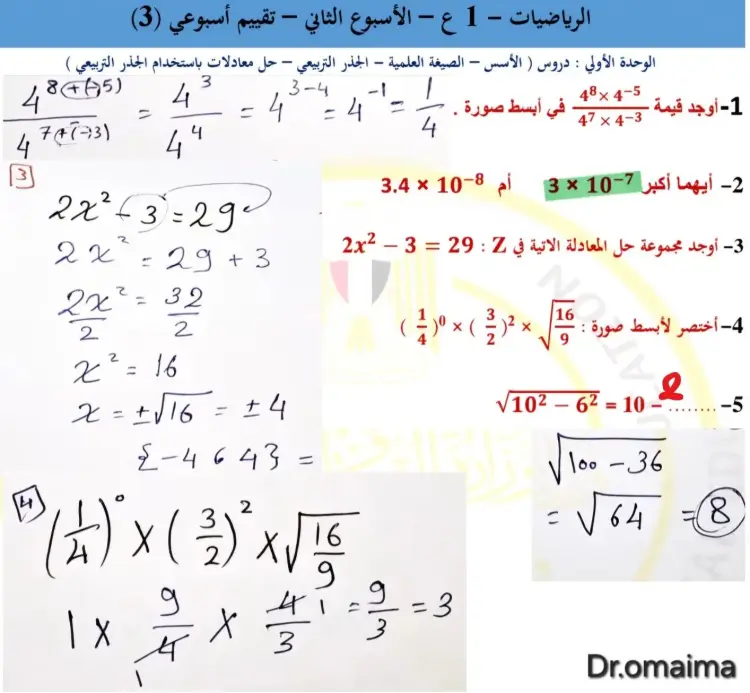 الرياضيات – 1 ع – الأسبوع الثاني – تقييم أسبوعي (3)
الوحدة الأولي : دروس ( الأسس – الصيغة العلمية – الجذر التربيعي – حل معادلات باستخدام الجذر التربيعي )
1- أوجد قيمة \frac{4^8 × 4^{-5}}{4^7 × 4^{-3}} في أبسط صورة .
\frac{4^{8+(-5)}}{4^{7+(-3)}} = \frac{4^3}{4^4} = 4^{3-4} = 4^{-1} = \frac{1}{4}
2- أيهما أكبر 3 × 10^{-7} أم 3.4 × 10^{-8}
3- أوجد مجموعة حل المعادلة الاتية في Z : 2x² − 3 = 29
3
2x² - 3 = 29
2x² = 29 + 3
\frac{2x²}{2} = \frac{32}{2}
x² = 16
x = ±√16 = ± 4
{-4 ، 4} =
4- أختصر لأبسط صورة : (\frac{1}{4})^0 × (\frac{3}{2})^2 × \sqrt{\frac{16}{9}}
4
(\frac{1}{4})^0 × (\frac{3}{2})^2 × \sqrt{\frac{16}{9}}
1 × \frac{9}{4} × \frac{4}{3} = \frac{9}{3} = 3
5- √(10² − 6²) = 10 − 2 ........
√(100 - 36)
= √64 = 8
Dr.omaima